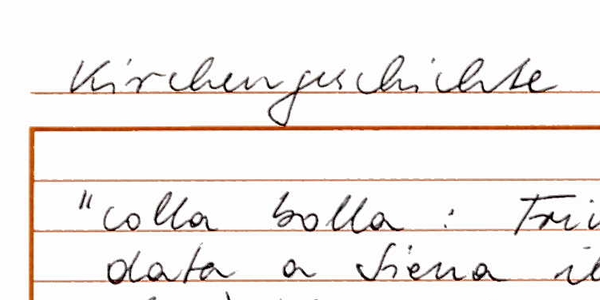 Kirchengeschichte
"colla bolla : Tri
data a Siena il